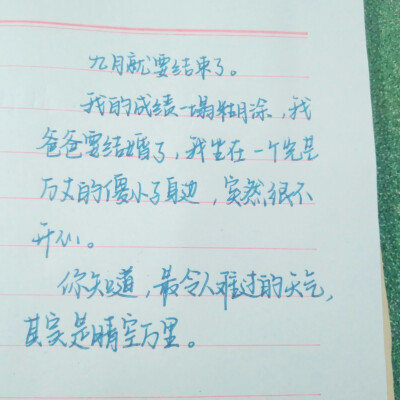 九月就要结束了。
我的成绩一塌糊涂，我
爸爸要结婚了，我坐在一个光芒
万丈的傻小子身边，突然很不
开心。
你知道，最令人难过的天气，
其实是晴空万里。